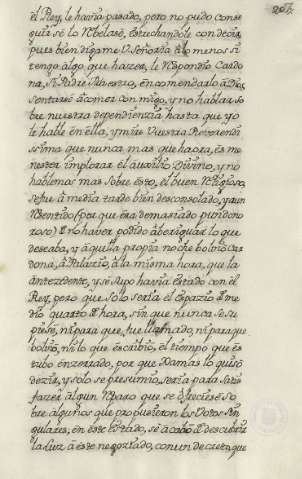 204
el Rey, le havia pasado, pero no pudo conse
guir se lo Rebelase, estrechandole con decir,
pues bien digame V. Señoria a lo menos si
tengo algo que hazer, le Respondio Cardo
na, Si Padre Maestro, encomendarlo à Dios,
sentarse à comer con migo, y no hablar so
bre nuestra dependienzia hasta que yo
le hable en ella, y mire Vuestra Reverendi
ssima que nunca mas que haora, es me
nester implorar el auxilio Divino, y no
hablemos mas sobre esto, el buen Religioso,
se fue à media tarde bien desconsolado, y aun
Resentido (por que era demasiado pundono
roso) de no haver podido aberiguar lo que
deseaba, y à quella propia noche bolvio Car
dona, à Palazio, à la misma hora, que la
antezedente, y se supo havia estado con el
Rey, pero que solo seria el espazio de me
dio quarto de hora, sin que nunca se su
piese, ni para que, fue llamado, ni para que
bolvio, ni lo que escribio, el tiempo que es
tubo enzerrado, por que Jamas lo quiso
dezir, y solo se presumio, seria para satis
fazer algun Reparo que se ofreciese so
bre algunos que propusieron los Votos Sin
gulares, en este estado, se acabò de descubrir
la Luz à este negoziado, con un decreto, que